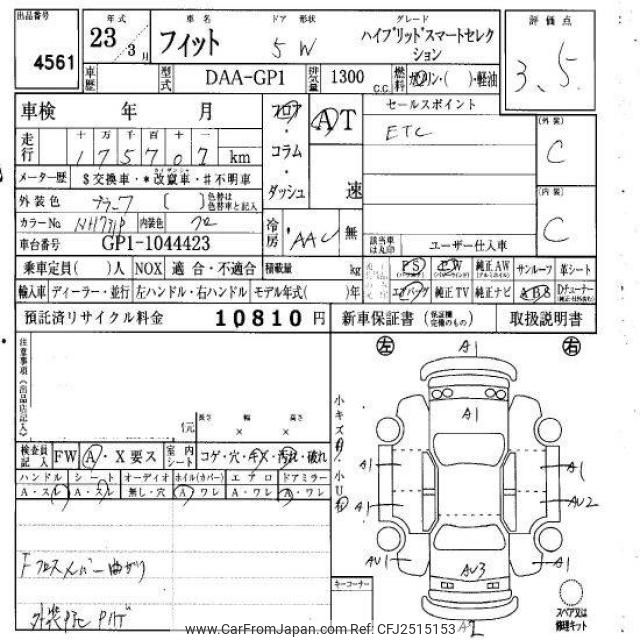 出品番号 年式 車名 ドア 形状 グレード 評価点
4561 23年 3月 フィット 5 W ハイブリッドスマートセレクション 3.5
車歴 型式 DAA-GP1 排気量 1300 c.c. 燃料 ガソリン・( )・軽油
車検 年 月 フロア・コラム・ダッシュ AT 速 セールスポイント (外装) C
ETC
走行 十 万 千 百 十 一
1 7 5 7 0 7 km
メーター歴 $交換車・*改竄車・#不明車 (内装) C
外装色 [ ] 色替は色替車と記入
カラーNo NH731P 内装色 クロ 冷房 AAC 無 該当車は丸印 ユーザー仕入車
車台番号 GP1-1044423
乗車定員( )人 NOX 適合・不適合 積載量 kg PS PW 純正AW サンルーフ 革シート
輸入車 ディーラー・並行 左ハンドル・右ハンドル モデル年式( )年 エアバッグ 純正TV 純正ナビ ABS Dチューナー
預託済リサイクル料金 10810 円 新車保証書 (保証欄完備のもの) 取扱説明書
注意事項(出品店記入) 左 右
A1
A1
小キズ有
長さ 幅 高さ
元 × ×
検査員記入 FW A・X要ス 室内シート コゲ・穴・キズ・汚れ・破れ
A1 A1
ハンドル シート オーディオ ホイル(カバー) エアロ ドアミラー 小U有
A・スレ A・スレ 無し・穴 A ワレ A・ワレ A・ワレ
A1 AU2
AU1 A1
AU3
Fクロスメンバー曲ガリ
コーナー
スペア又は修理キット
A2
www.CarFromJapan.com Ref: CFJ2515153